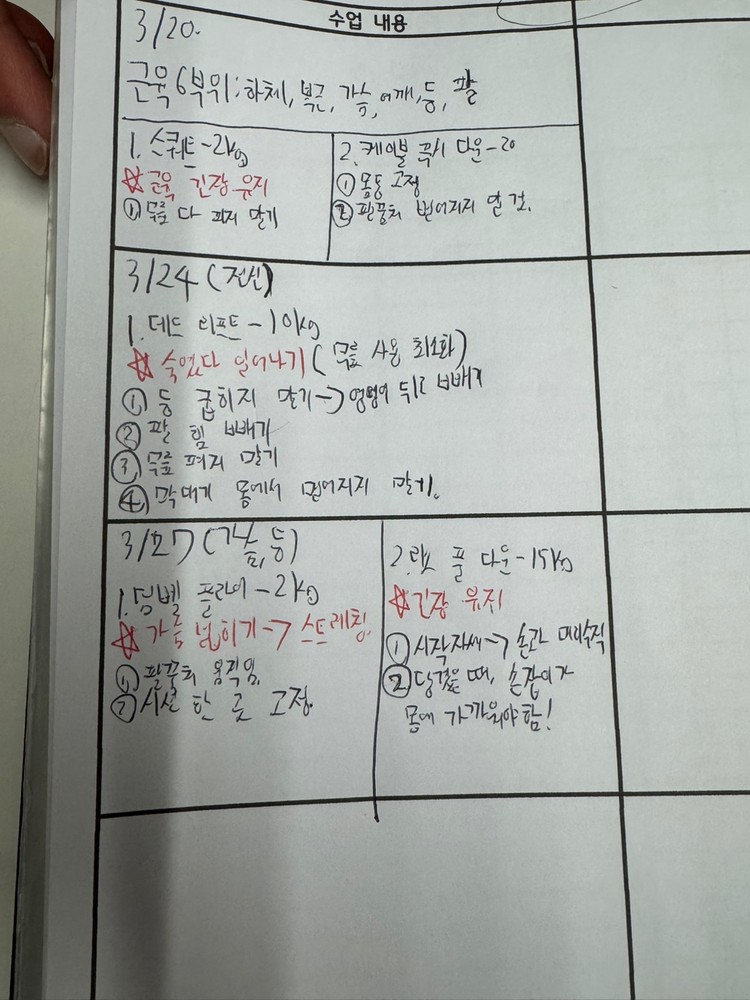 수업 내용
3/20.
근육 6부위: 하체, 복근, 가슴, 어깨, 등, 팔
1. 스쿼트-2kg
☆근육 긴장 유지
① 무릎 다 펴지 말기
2. 케이블 푹시 다운-20
① 몸통 고정
② 팔꿈치 벌어지지 말 것.
3/24 (전신)
1. 데드 리프트-10kg
☆숙였다 일어나기 (무릎 사용 최소화)
① 등 굽히지 말기→엉덩이 뒤로 빼기
② 팔 힘 빼기
③ 무릎 펴지 말기
④ 막대기 몸에서 멀어지지 말기.
3/27 (가슴, 등)
1. 덤벨 플라이-2kg
☆가슴 넓히기→스트레칭.
① 팔꿈치 움직임.
② 시선 한 곳 고정.
2. 랫 풀 다운-15kg
☆긴장 유지
① 시작자세→손과 대수직
② 당겼을 때, 손잡이가
몸에 가까워야함!